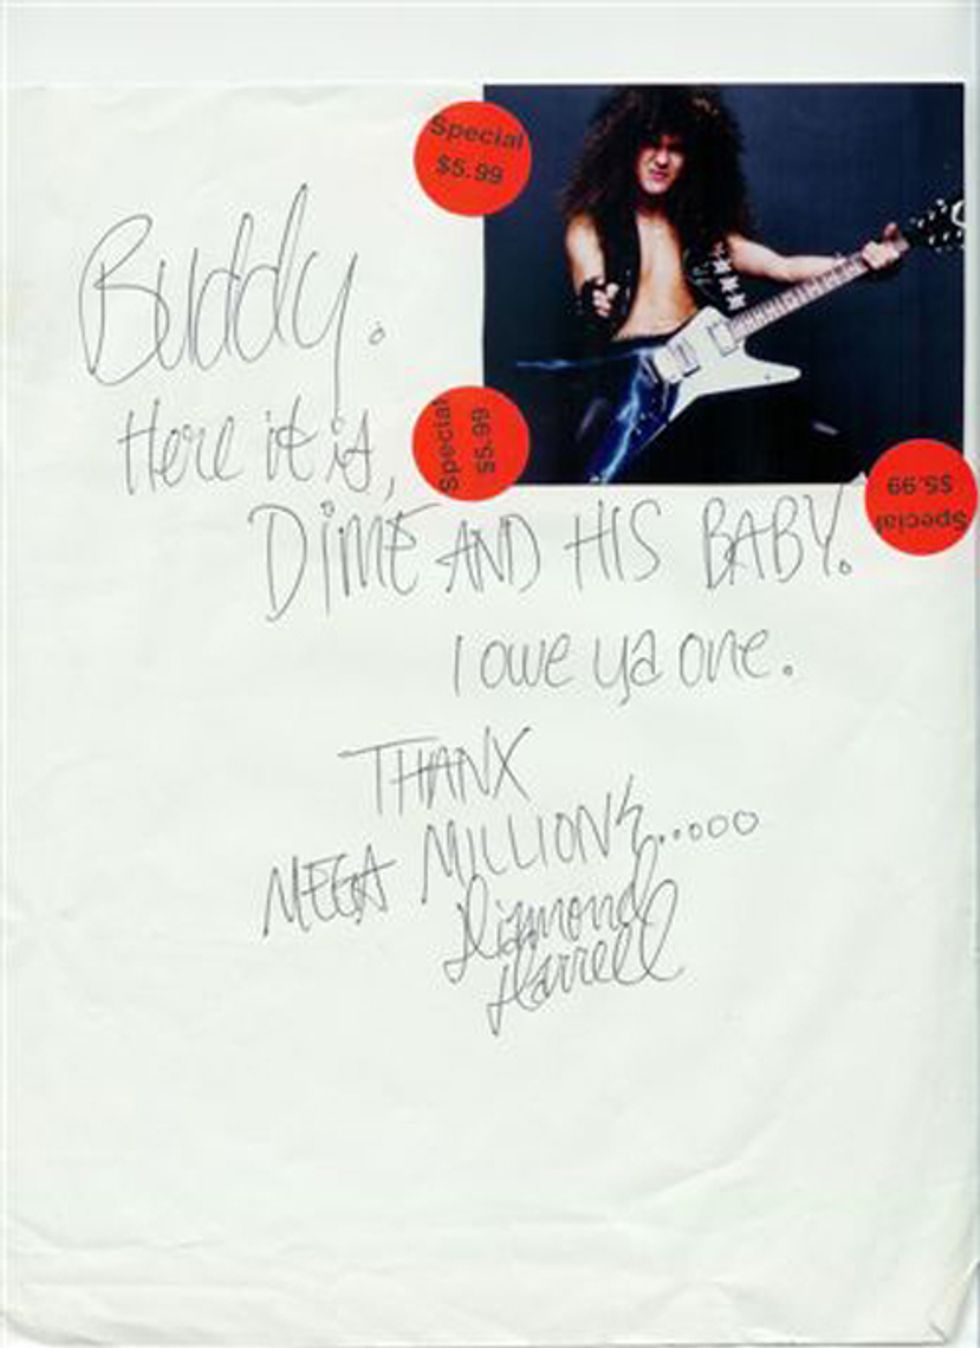 Special
$5.99
Buddy.
Here it is,
Special
$5.99
Special
$5.99
DIME AND HIS BABY.
I owe ya one.
THANX
MEGA MILLIONS........
Diamond
Darrell